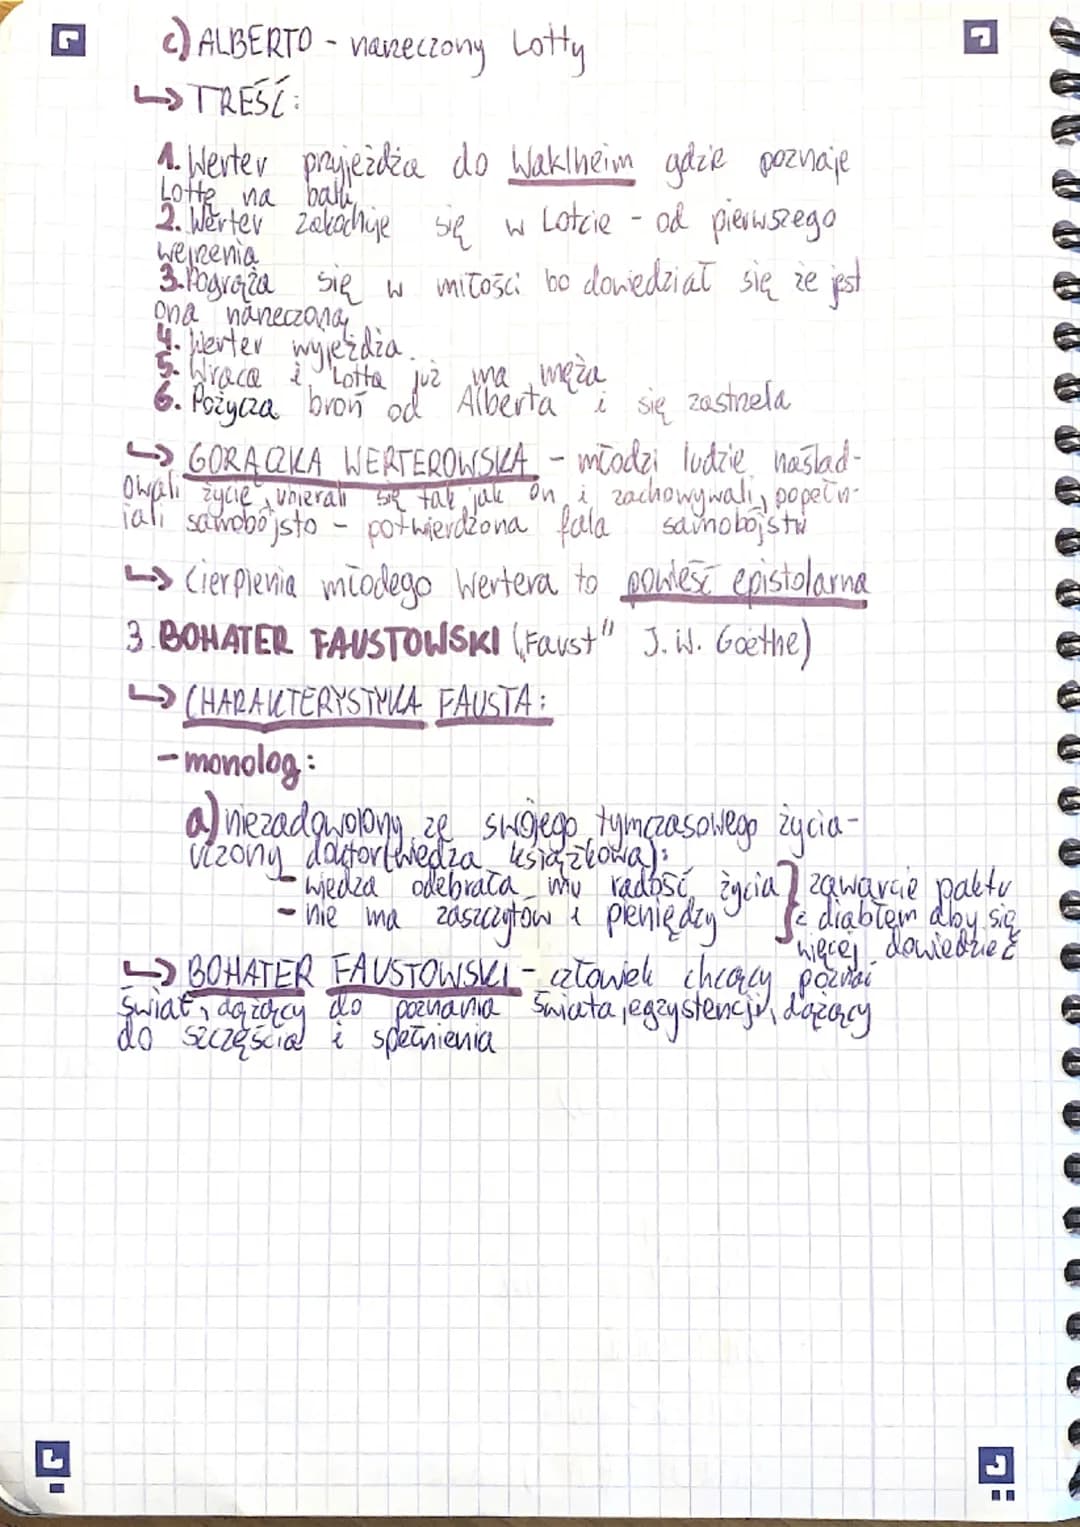 c) ALBERTO - narzeczony Lotty
↳ TREŚĆ:
1. Werter przyjeżdża do Waklheim gdzie poznaje
Lottę na balu
2. Werter zakochuje się w Lotcie - od pierwszego
wejrzenia
3. Pogrąża się w miłości bo dowiedział się że jest
ona narzeczoną
4. Werter wyjeżdża.
5. Wraca i Lotta już ma męża
6. Pożycza broń od Alberta i się zastrzela
↳ GORĄCZKA WERTEROWSKA - młodzi ludzie naślad-
owali życie, ubierali się tak jak on i zachowywali, popełn-
iali samobójsto - potwierdzona fala samobójstw
↳ Cierpienia młodego Wertera to powieść epistolarna
3. BOHATER FAUSTOWSKI („Faust" J. W. Goethe)
↳ CHARAKTERYSTYKA FAUSTA:
- monolog:
a) niezadowolony ze swojego tymczasowego życia -
uczony doktor (wiedza książkowa):
- wiedza odebrała mu radość życia } zawarcie paktu
- nie ma zaszczytów i pieniędzy z diabłem aby się
więcej dowiedzieć
↳ BOHATER FAUSTOWSKI - człowiek chcący poznać
świat, dążący do poznania świata, egzystencji, dążący
do szczęścia i spełnienia